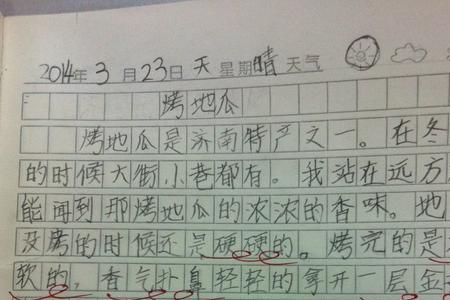 2014年3月23日 天 星期晴天气
烤地瓜
烤地瓜是济南特产之一。在冬
的时候大街小巷都有。我站在远方
能闻到那烤地瓜的浓浓的香味。地
没烤的时候还是硬硬的。烤完的是
软的，香气扑鼻轻轻的拿开一层金